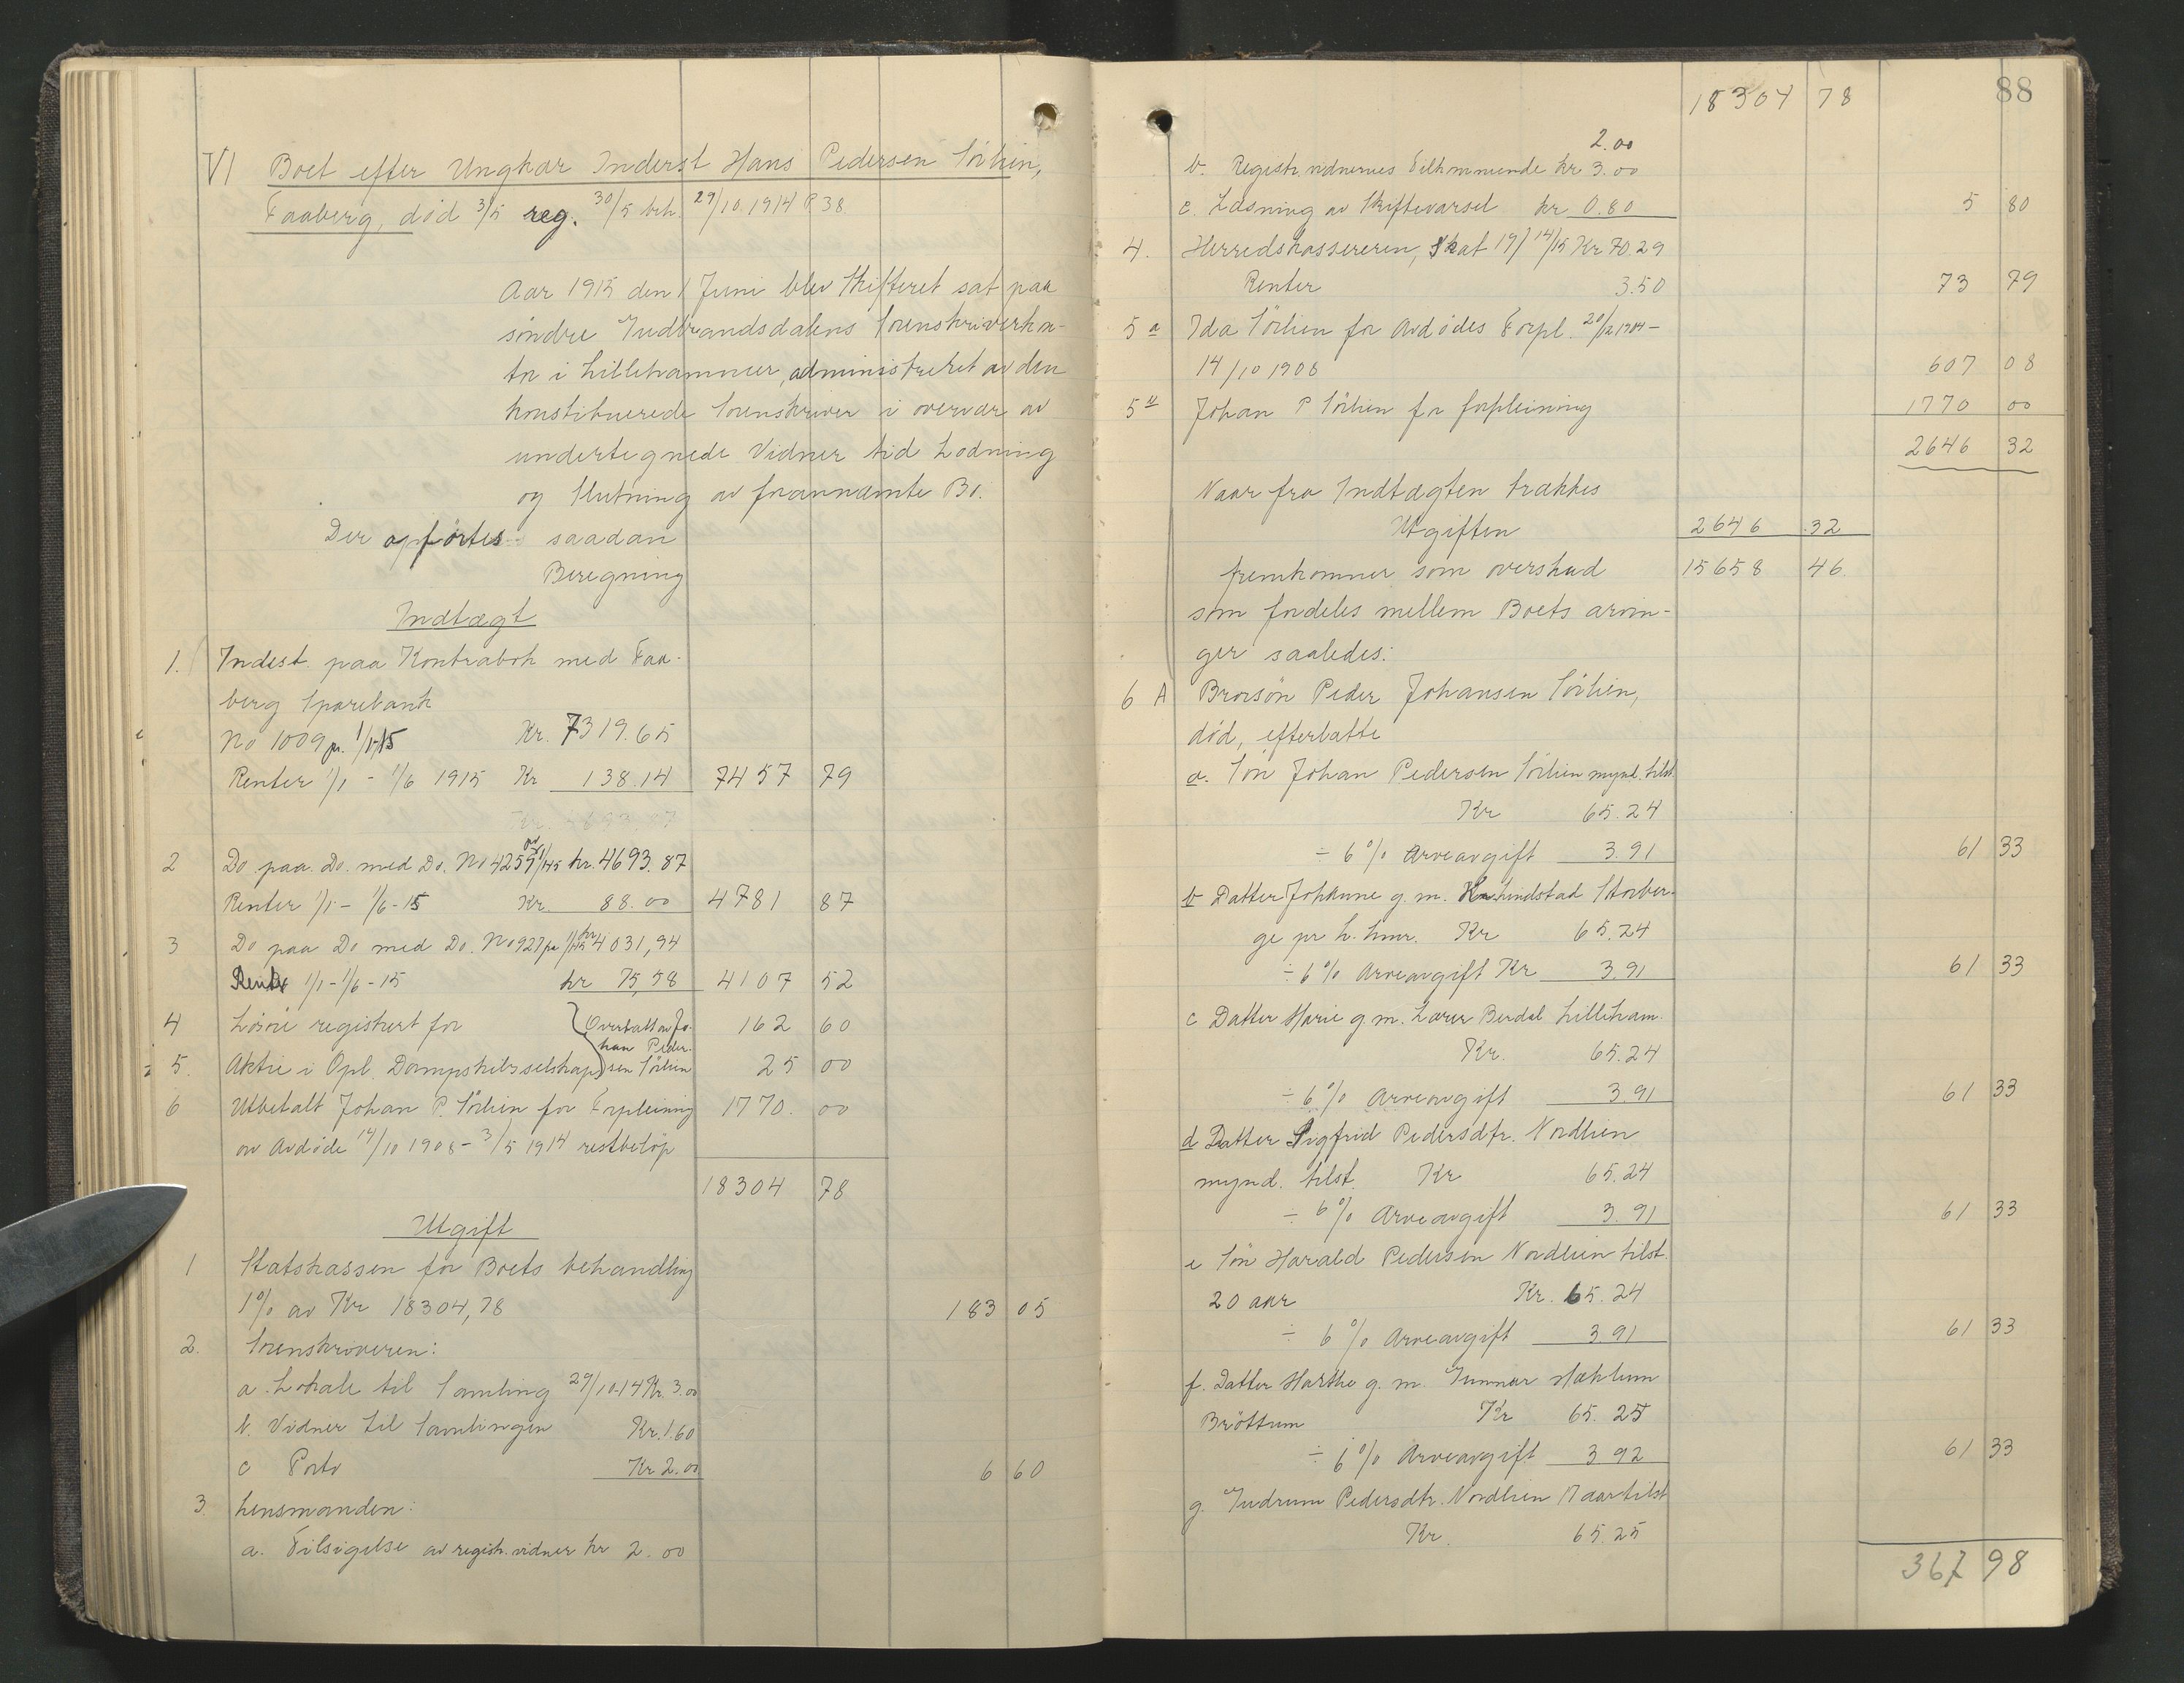 VI Boet efter Ungkar Inderst Hans Pedersen Sörlien,
Faaberg, död 3/5 reg. 30/5 beh. 29/10 1914 P 38
Aar 1915 den 1 Juni blev Skifteret sat paa
söndre Gudbrandsdalens Sorenskriverkon-
tor i Lillehammer, administreret av den
konstituerede Sorenskriver i overvær av
undertegnede Vidner tid Lodning
og Slutning av forannæmte Bo.
Der opförtes saadan
Beregning
Indtægt
1. Indest. paa Kontrabok med Faa-
berg Sparebank
No 1009 pr. 1/1-15 Kr. 7319.65
Renter 1/1 - 1/6 1915 Kr 138.14 7457 79
2 Do paa Do. med Do. No 4259 pr 1/1-15 kr. 4693.87
Renter 1/1 - 1/6 - 15 Kr. 88.00 4781 87
3 Do paa Do med Do. No 927 pr 1/1-15 kr 4031,94
Renter 1/1 - 1/6 - 15 kr 75,58 4107 52
4 Lösöre registrert for Overtatt av Jo- 162 60
han Peder-
5. Aktie i Opl. Dampskibsselskap sen Sörlien 25 00
6 Utbetalt Johan P. Sörlien for Forpleining 1770. 00
av Avdöde 14/10 1908 - 3/5 1914 restbelöp
18304 78
Utgift
1 Statskassen for Boets behandling
1% av Kr 18304,78 183 05
2. Sorenskriveren:
a. Lokale til Samling 29/10-14 Kr. 3.00
b. Vidner til Samlingen Kr. 1.60
c Porto Kr 2.00 6 60
3. Lensmanden:
a. Tilsigelse av registr. vidner kr 2.00
88
18304 78
2.00
b. Registr. vidnernes Tilkommende kr. 3.00
c. Læsning av Skiftevarsel kr 0.80 5 80
4. Herredskassereren, Skat 19 14/15 Kr 70.29
Renter 3.50 73 79
5 a Ida Sörlien for Avdödes Forpl. 20/12 1904 -
14/10 1908 607 08
5 b Johan P Sörlien for forpleining 1770 00
2646 32
Naar fra Indtægten trækkes
Utgiften 2646 .32
fremkommer som overskud 15658 46.
som fordeles mellem Boets arvin-
ger saaledes:
6 A Brorsön Peder Johansen Sörlien,
död, efterlatte
a. Sön Johan Pedersen Sörlien mynd. tilst.
Kr 65.24
÷ 6% Arveavgift 3.91 61 33
b Datter Johanne g. m. Kr. Lindstad Storber-
ge pr L. hmr. Kr 65.24
÷ 6% Arveavgift Kr 3.91 61 33
c Datter Marie g. m. Lærer Berdal Lilleham.
Kr. 65.24
÷ 6% Arveavgift 3.91 61 33
d Datter Sigfrid Pedersdtr. Nordlien
mynd. tilst. Kr 65.24
÷ 6% Arveavgift 3.91 61 33
e Sön Harald Pedersen Nordlien tilst.
20 aar Kr. 65.24
÷ 6% Arveavgift 3.91 61 33
f. Datter Marthe g. m. Gunnar Mæhlum
Bröttum Kr 65.25
÷ 6% Arveavgift 3 92 61 33
g. Gudrun Pedersdtr. Nordlien 17 aar tilst
Kr. 65.25
367 98